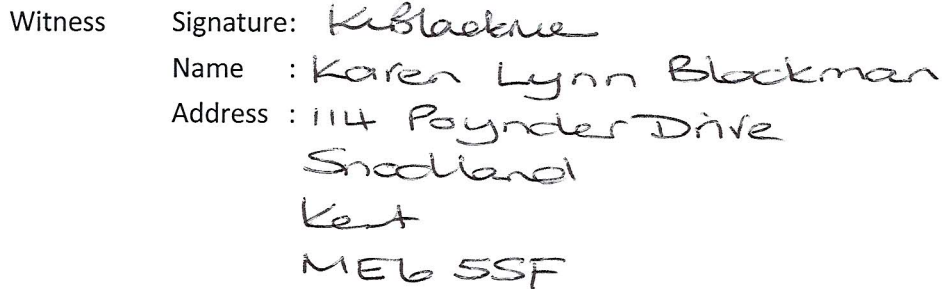 Witness Signature: KBlackman
Name : Karen Lynn Blackman
Address : 114 Poynder Drive
Snodland
Kent
ME6 5SF